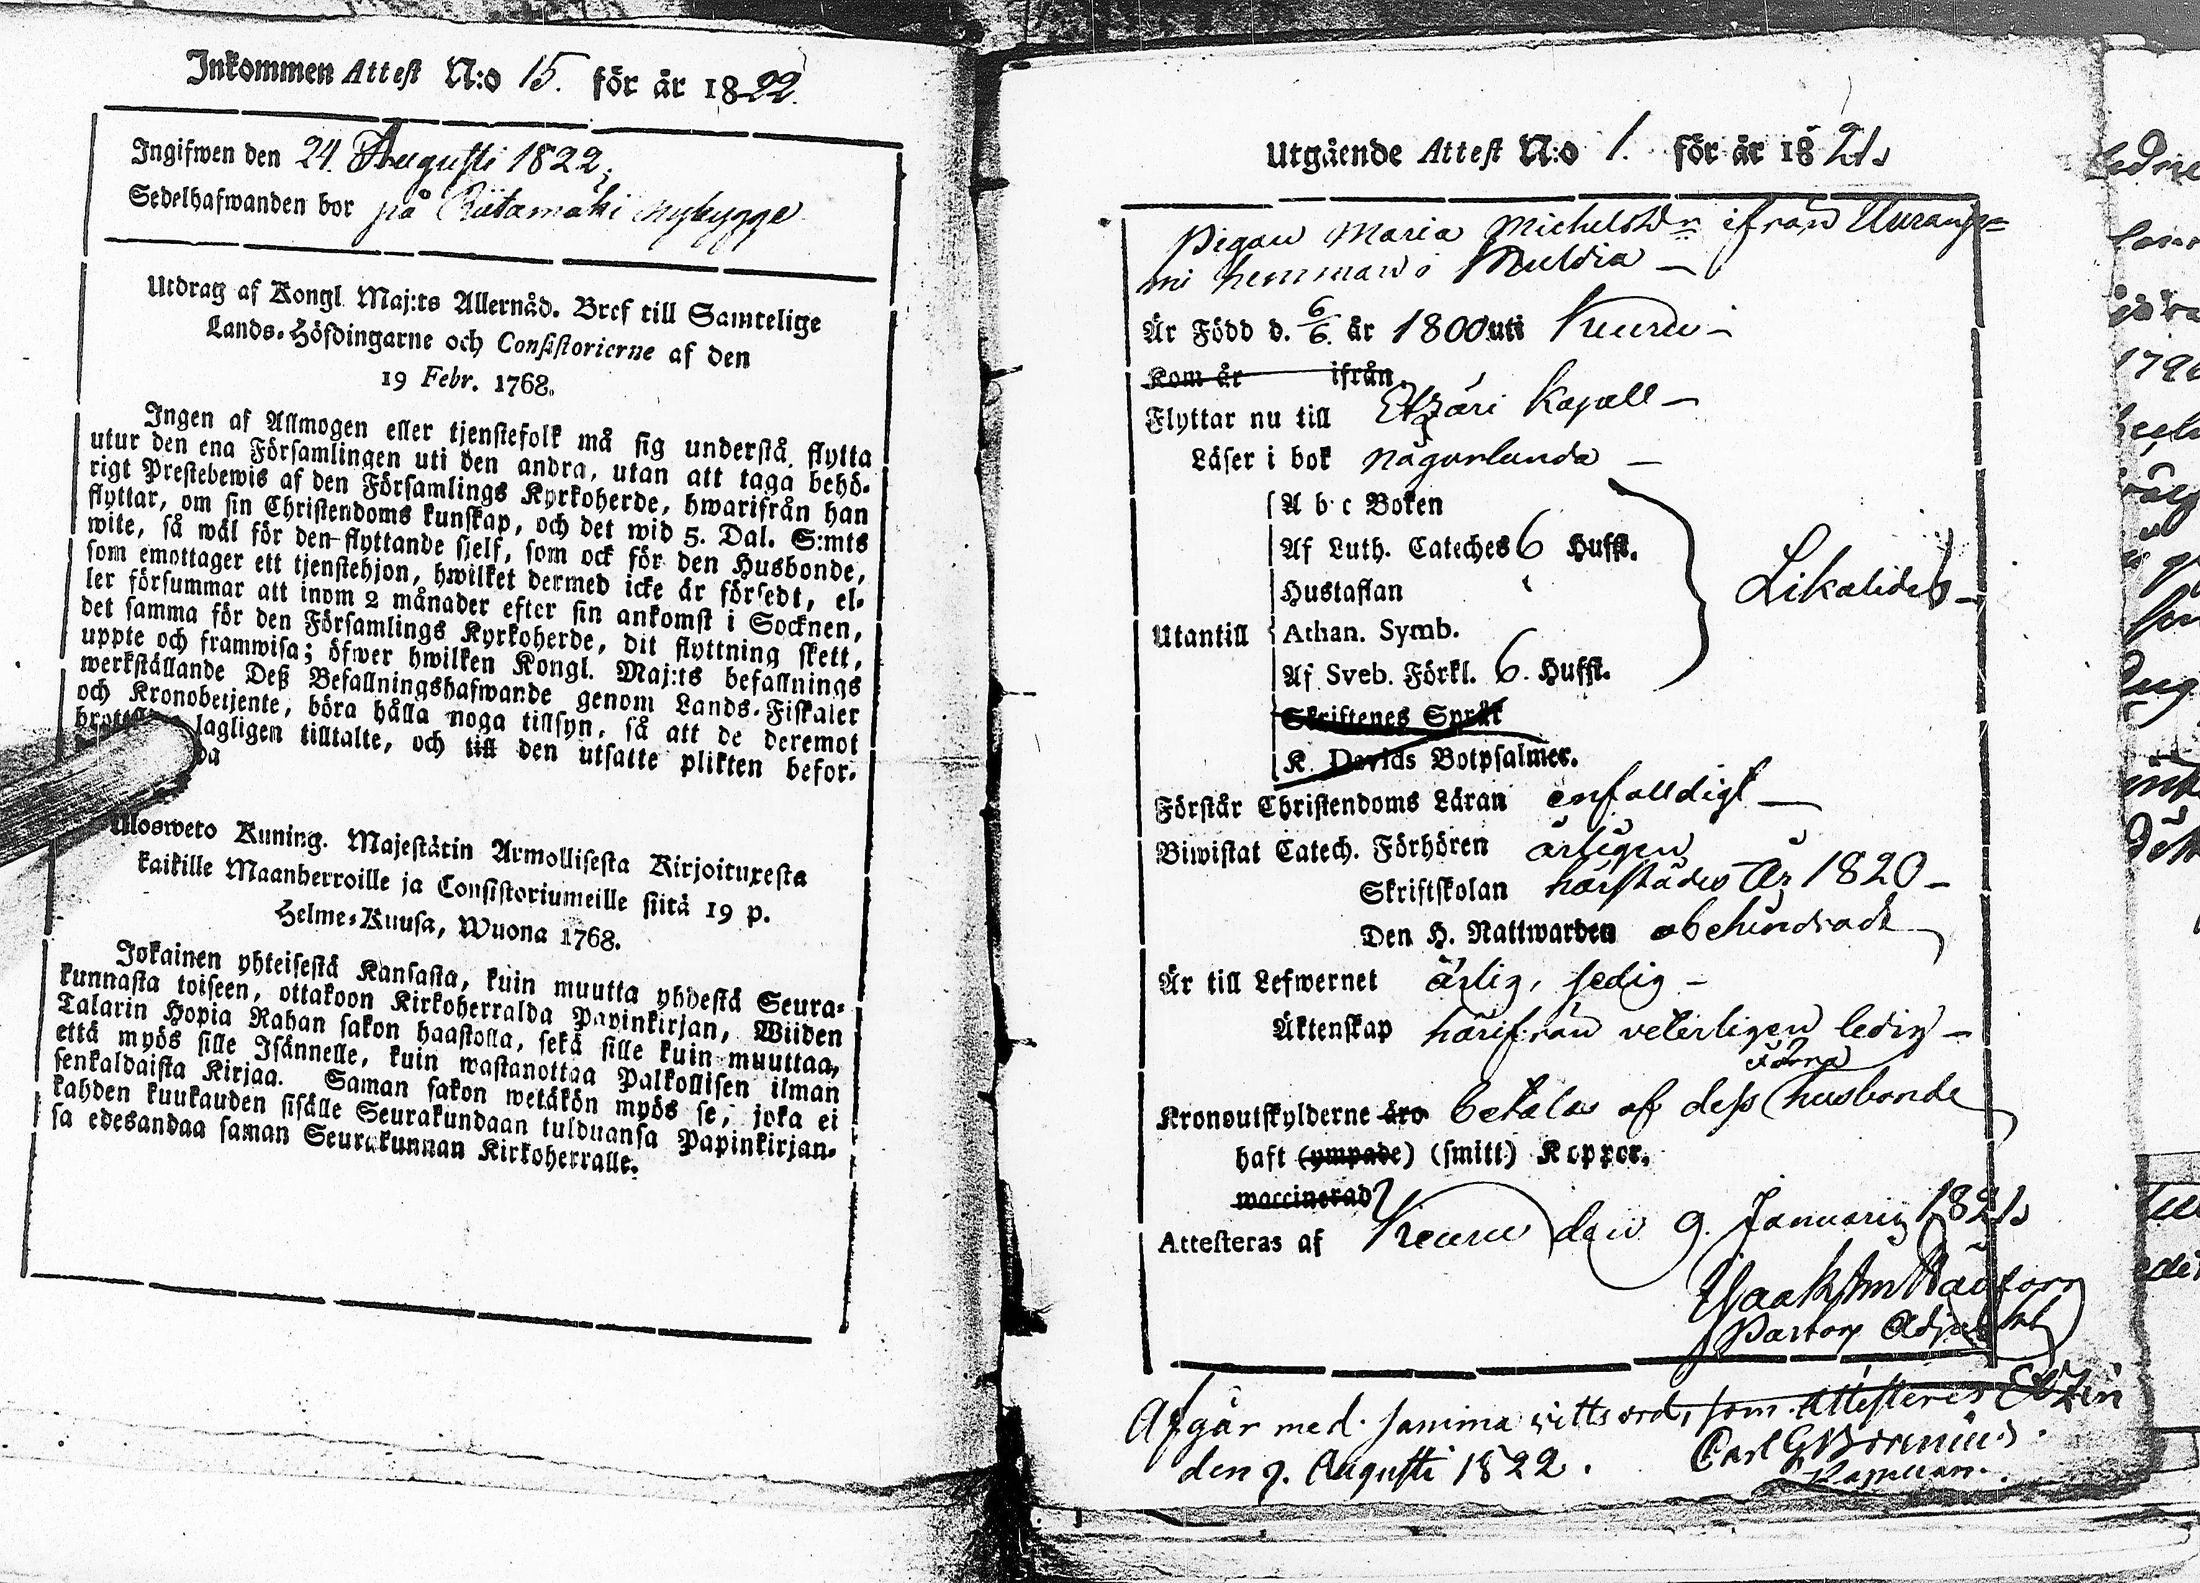 Inkommen Attest N:o 15. för år 1822.
Ingifwen den 24. Augusti 1822,
Sedelhafwanden bor på Riitamäki nybygge
Utdrag af Kongl. Maj:ts Allernåd. Bref till Samtelige
Lands-Höfdingarne och Consistorierne af den
19 Febr. 1768.
Ingen af Allmogen eller tjenstefolk må sig understå flytta
utur den ena Församlingen uti den andra, utan att taga behö-
rigt Prestebewis af den Församlings Kyrkoherde, hwarifrån han
flyttar, om sin Christendoms kunskap, och det wid 5. Dal. S:mts
wite, så wäl för den flyttande sjelf, som ock för den Husbonde,
som emottager ett tjenstehjon, hwilket dermed icke är försedt, el-
ler försummar att inom 2 månader efter sin ankomst i Socknen,
det samma för den Församlings Kyrkoherde, dit flyttning skett,
uppte och framwisa; öfwer hwilken Kongl. Maj:ts befallnings
werkställande Deß Befallningshafwande genom Lands-Fiskaler
och Kronobetjente, böra hålla noga tillsyn, så att de deremot
lagligen tilltalte, och till den utsatte plikten befor-
Ulosweto Kuning. Majestätin Armollisesta Kirjoituxesta
kaikille Maanherroille ja Consistoriumeille siitä 19 p.
Helme-Kuusa, Wuona 1768.
Jokainen yhteisestä Kansasta, kuin muutta yhdestä Seura-
kunnasta toiseen, ottakoon Kirkoherralda Papinkirjan, Wiiden
Talarin Hopia Rahan sakon haastolla, sekä sille kuin muuttaa,
että myös sille Isännelle, kuin wastanottaa Palkollisen ilman
senkaldaista Kirjaa. Saman sakon wetäkön myös se, joka ei
kahden kuukauden sisälle Seurakundaan tulduansa Papinkirjan-
sa edesandaa saman Seurakunnan Kirkoherralle.
Utgående Attest N:o 1. för år 1821.
Pigan Maria Michelsdr ifrån
hemman i Muldia
Är Född d. 6/6. år 1800 uti Keuru
Kom år ifrån
Flyttar nu till Etzäri Kapell
Läser i bok någorlunda
A b c Boken
Af Luth. Cateches 6 Huffst.
Hustaflan
Likaledes
Utantill Athan. Symb.
Af Sveb. Förkl. 6. Huffst.
Skriftenes Språk
K. Davids Botpsalmer.
Förstår Christendoms Läran enfalldigt
Biwistat Catech. Förhören årligen
Skriftskolan härstädes År 1820
Den H. Nattwarden obehindradt
Är till Lefwernet ärlig, sedig
Äktenskap härifrån veterligen ledig
Kronoutskylderne äro betalas af dess förra husbonde
haft (ympade) (smitt) Koppor.
waccinerad
Attesteras af Keuru den 9. Januarii 1821.
Pastors Adjunkt
Afgår med samma wittsord, som Attesteres Etzäri
den 9. Augusti 1822. Carl G
Kapellan.